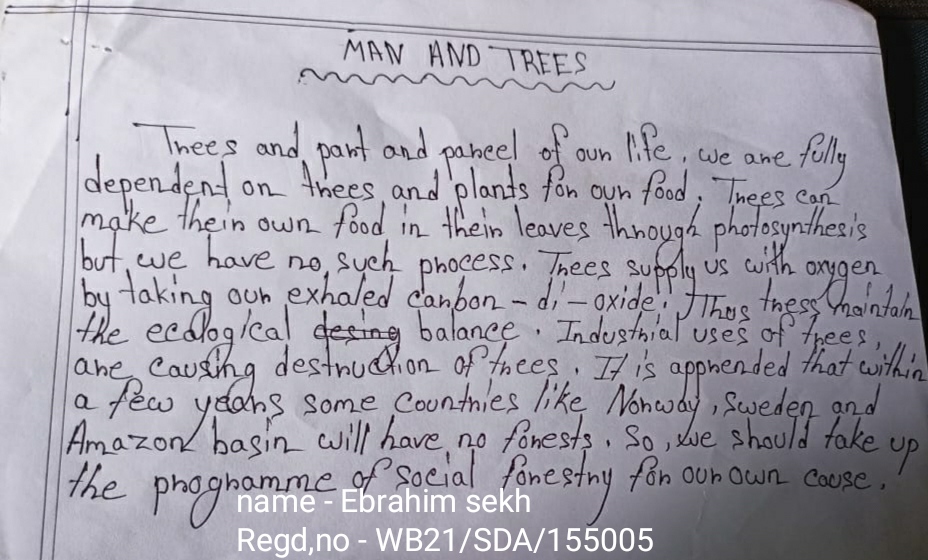 MAN AND TREES
Trees and part and parcel of our life, we are fully
dependent on trees and plants for our food. Trees can
make their own food in their leaves through photosynthesis
but we have no such process. Trees supply us with oxygen
by taking our exhaled carbon-di-oxide. Thus tress maintain
the ecological desing balance. Industrial uses of trees,
are causing destruction of trees. It is apprended that within
a few years some countries like Norway, Sweden and
Amazon basin will have no forests. So, we should take up
the programme of social forestry for our own couse.
name - Ebrahim sekh
Regd,no - WB21/SDA/155005